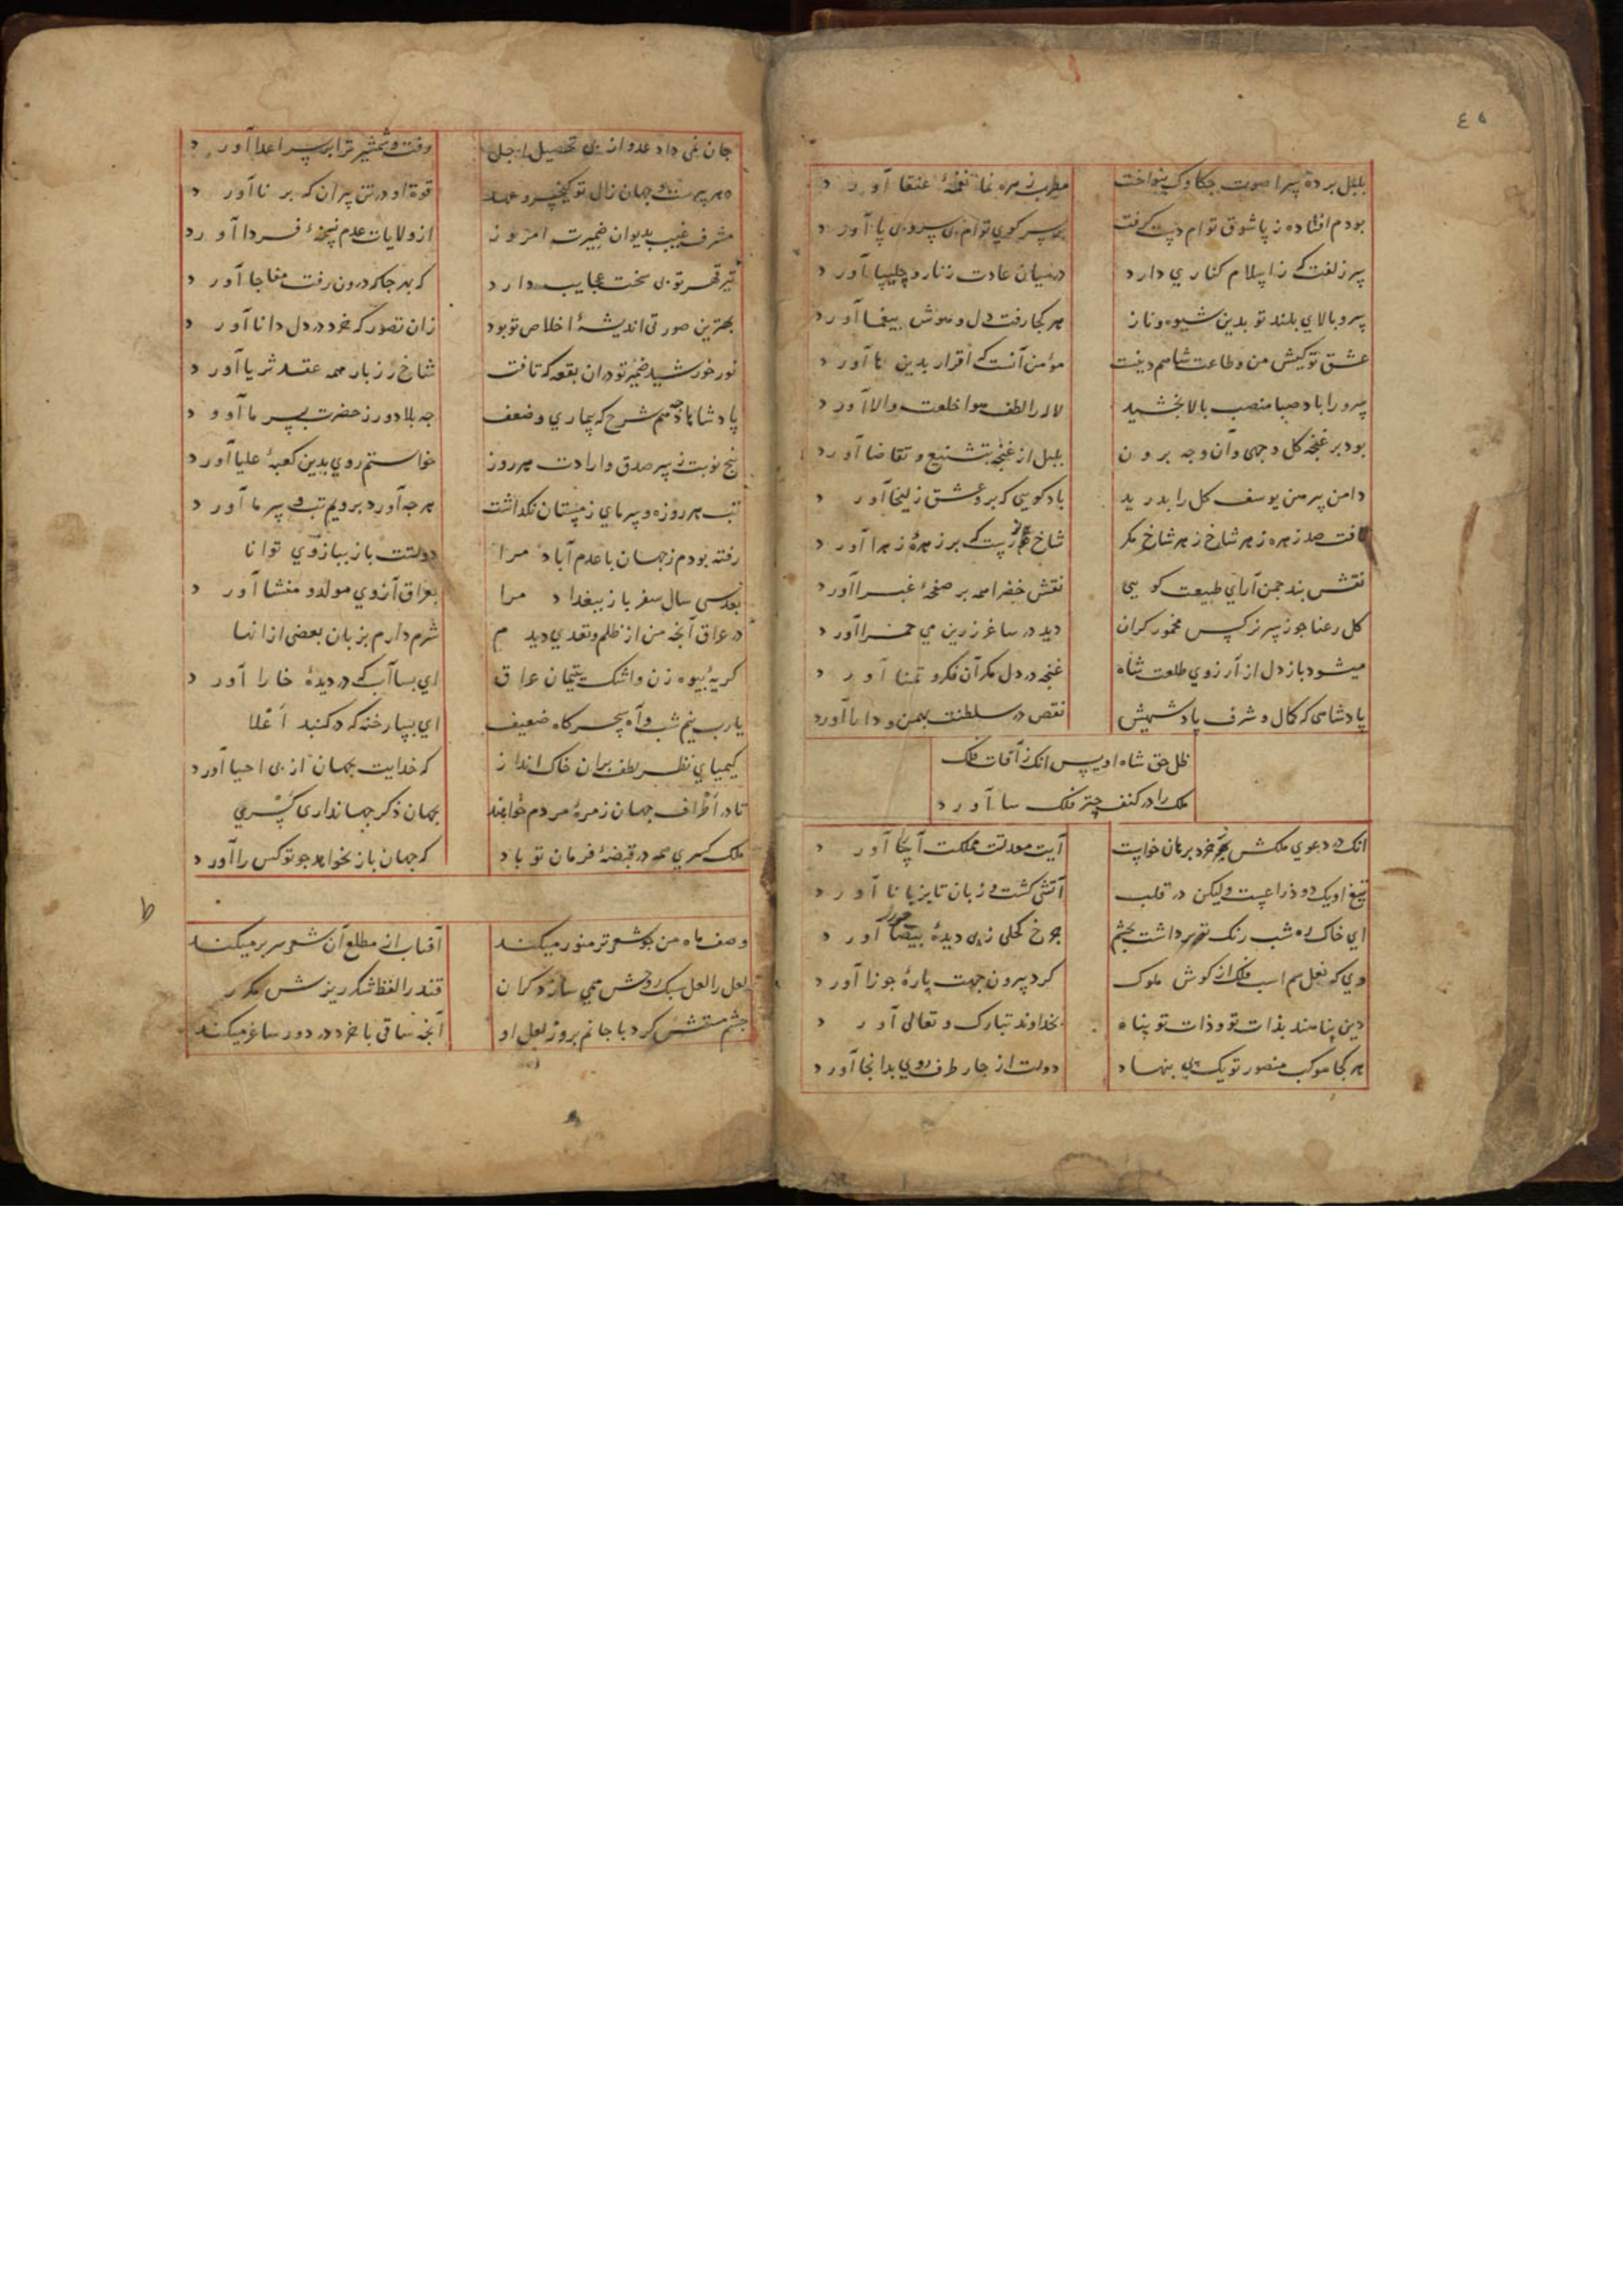 ٤٥
بلبل پرده سرا صوت جکاوک بنواخت مطرب زمزمه نما نغمهٔ عنقا آورد
بودم افتاده ز پا شوق توام دست گرفت بر سر کوی توام بی سر و بی پا آورد
سر زلفت که ز اسلام کناری دارد در میان عادت زنار و چلیپا آورد
سرو بالای بلند تو بدین شیوه و ناز هر کجا رفت دل و هوش بیغما آورد
عشق تو کیش من و طاعت شاهم دینست مؤمن آنست که اقرار بدین ها آورد
سرو را باد صبا منصب بالا بخشید لاله را لطف هوا خلعت والا آورد
بود بر غنچه کل وجهی و آن وجه برون بلبل از غنچه بتشنیع و تقاضا آورد
دامن پیرهن یوسف کل را بدرید باد کویی که بر و عشق زلیخا آورد
یافت صد زهره ز هر شاخ ز هر شاخ مکر شاخ که بر زهرهٔ زهرا آورد
نقش بند جمن آرای طبیعت کویی نقش خضرا همه بر صفحهٔ غبرا آورد
کل رعنا جو ز سر نرکس مخمور کران دید در ساغر زرین می حمرا آورد
میشود باز دل از آرزوی طلعت شاه غنجه در دل مکر آن فکر و تمنا آورد
پادشاهی که کمال و شرف پادشهیش نقص در سلطنت بهمن و دارا آورد
ظل حق شاه اویس انک ز آفات فلک
ملک را در کنف چتر فلک سا آورد
انک در دعوی ملکش خرد برهان خواست آیت معدلت مملکت آنجا آورد
تیغ او یک دو ذراعیست ولیکن در قلب آتشی کشت که زبان تا بزبانا آورد
ای خاک ره شب رنک تو برداشت بچشم جرخ کحلی ز پی دیدهٔ حورا آورد
وی که نعل سم اسب فلک از کوش ملوک کرد بیرون جهت پارهٔ جوزا آورد
دین پناهند بذات تو و ذات تو پناه بخداوند تبارک و تعالی آورد
هر کجا موکب منصور تو یک پی بنهاد دولت از جار طرف روی بدانجا آورد
جان نمی داد عدو از پی تحصیل اجل رفت و شمشیر ترا بر سر اعدا آورد
دهر پیرست و جهان زال تو کیخسرو عهد قوة او در تن پیران که بر نا آورد
مشرف غیب بدیوان ضمیرت امروز از ولایات عدم نسخهٔ فردا آورد
تیر قهر تو بی سخت عجایب دارد که بهر جا که درون رفت مفاجا آورد
بهترین صورتی اندیشهٔ اخلاص تو بود زان تصور که خرد در دل دانا آورد
نور خورشید ضمیر تو در ان بقعه که تافت شاخ رز بار همه عقد ثریا آورد
پادشاها جه دهم شرح که بیماری و ضعف جه بلا دور ز حضرت بسر ما آورد
پنج نوبت ز سر صدق و ارادت هر روز خواستم روی بدین کعبهٔ علیا آورد
تب هر روزه و سرمای زمستان نکذاشت هر جه آورد برویم تب و سرما آورد
رفته بودم ز جهان با عدم آباد مرا دولتت باز ببازوی توانا
بعد سی سال سفر باز ببغداد مرا بعراق آرزوی مولد و منشا آورد
در عراق آنجه من از ظلم و تعدی دیدم شرم دارم بزبان بعضی از انها
کریهٔ بیوه زن و اشک یتیمان عراق ای بسا آب که در دیدهٔ خارا آورد
یارب نیم شب و آه سحرکاه ضعیف ای بسا رخنه که در کنبد اعلا
کیمیای نظر لطف بران خاک انداز که خدایت بجهان از پی احیا آورد
تا در اطراف جهان زمرهٔ مردم خوانند بجهان ذکر جهانداری کسری
ملک کسری همه در قبضهٔ فرمان تو باد که جهان باز نخواهد جو تو کس را آورد
وصف ماه من جو شعر تر منور میکند آفتاب از مطلع آن شعر سر بر میکند
لعل را لعل سبک روحش همی سازد کران قند را لفظ شکر ریزش مکرر
جشم مستش کرد با جانم بروز لعل او آنجه ساقی با خرد در دور ساغر میکند